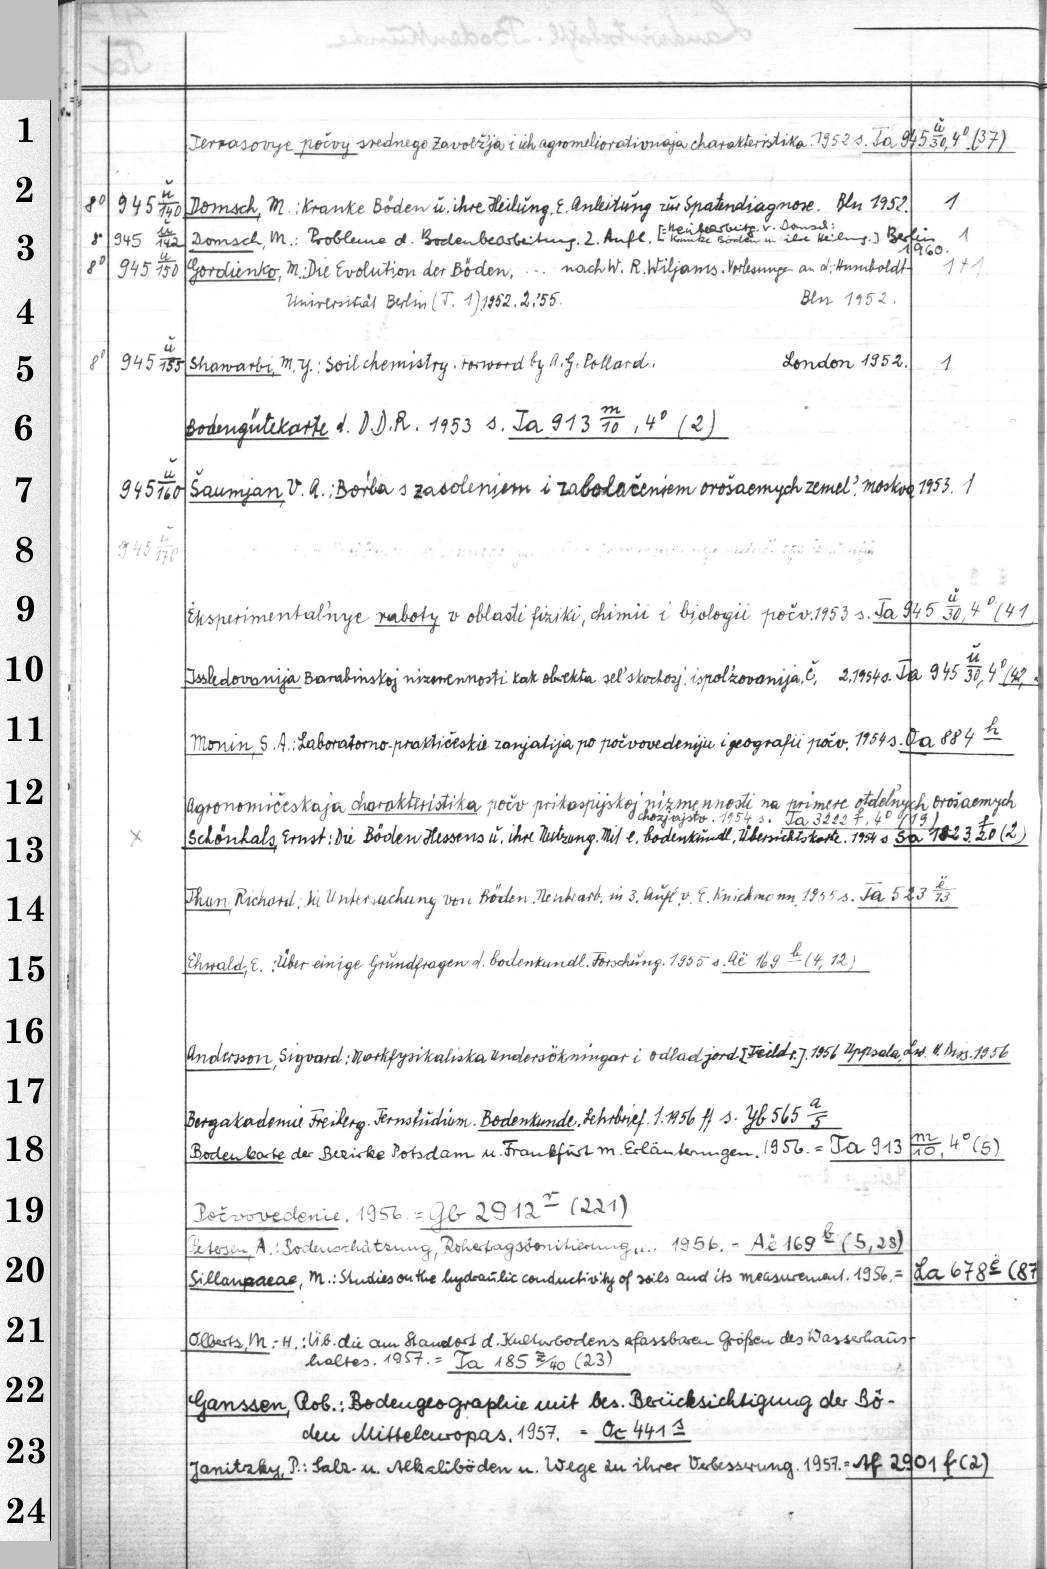 1
Terrasovye počvy srednego Zavolžja i ich agromeliorativnaja charakteristika. 1952 s. Ta 945 ü/30, 4° (37)
2
8° 945 ü/140 Domsch, M.: Kranke Böden u. ihre Heilung. E. Anleitung zur Spatendiagnose. Bln 1952. 1
3
8° 945 ü/142 Domsch, M.: Probleme d. Bodenbearbeitung. 2. Aufl. [=Neubearbeitg. v. Domsch: Kranke Böden u. ihre Heilung.] Berlin 1960. 1
8° 945 ü/150 Gordienko, M.: Die Evolution der Böden, ... nach W. R. Wiljams. Vorlesungen an d. Humboldt- 1+1
4
Universität Berlin (T. 1) 1952. 2.'55. Bln 1952.
5
8° 945 ü/155 Shawarbi, M. Y.: Soil chemistry. Forword by A. G. Pollard. London 1952. 1
6
Bodengütekarte d. D.D.R. 1953 s. Ta 913 m/10, 4° (2)
7
945 ü/160 Šaumjan, V. A.: Boŕba s zasoleniem i zabolačeniem orošaemych zemel'. Moskva 1953. 1
8
945 ü/170
9
Ėksperimental'nye raboty v oblasti fiziki, chimii i biologii počv. 1953 s. Ta 945 ü/30, 4° (41
10
Issledovanija Barabinskoj nizmennosti kak obekta sel'skochozj. ispol'zovanija. Č. 2. 1954 s. Ta 945 ü/30, 4° (42,
11
Monin, S. A.: Laboratorno-praktičeskie zanjatija po počvovedeniju i geografii počv. 1954 s. Oa 884 h
12
Agronomičeskaja charakteristika počv prikaspijskoj nizmennosti na primere otdel'nych orošaemych
chozjajstv. 1954 s. Ta 3222 f, 4° (19)
13
× Schönhals, Ernst: Die Böden Hessens u. ihre Nutzung. Mit e. bodenkundl. Übersichtskarte. 1954 s. Sa 1823 f/20 (2)
14
Thun, Richard: Die Untersuchung von Böden. Neubearb. in 3. Aufl. v. E. Knickmann. 1955 s. Ta 523 ë/13
15
Ehwald, E.: Über einige Grundfragen d. bodenkundl. Forschung. 1955 s. Aë 169 b (4, 12)
16
Andersson, Sigvard: Markfysikaliska undersökningar i odlad jord [Teildr.]. 1956 Uppsala, Lw. H. Diss. 1956
17
Bergakademie Freiberg. Fernstudium. Bodenkunde. Lehrbrief 1. 1956 ff s. Yb 565 a/5
18
Bodenkarte der Bezirke Potsdam u. Frankfurt m. Erläuterungen. 1956. = Ta 913 m/10, 4° (5)
19
Počvovedenie. 1956. = Gb 2912 r (221)
Petersen, A.: Bodenschätzung, Rohertagsbonitierung,... 1956. - Aë 169 b (5, 23)
20
Sillanpaeae, M.: Studies on the hydraulic conductivity of soils and its measurement. 1956. = La 678 ë (87
21
Olberts, M.-H.: Üb. die am Standort d. Kulturbodens erfassbaren Größen des Wasserhaus-
haltes. 1957. = Ta 185 z/40 (23)
22
Ganssen, Rob.: Bodengeographie mit bes. Berücksichtigung der Bö-
den Mitteleuropas. 1957. = Oc 441 s
23
Janitzky, P.: Salz- u. Alkaliböden u. Wege zu ihrer Verbesserung. 1957. = Af 2901 f (2)
24